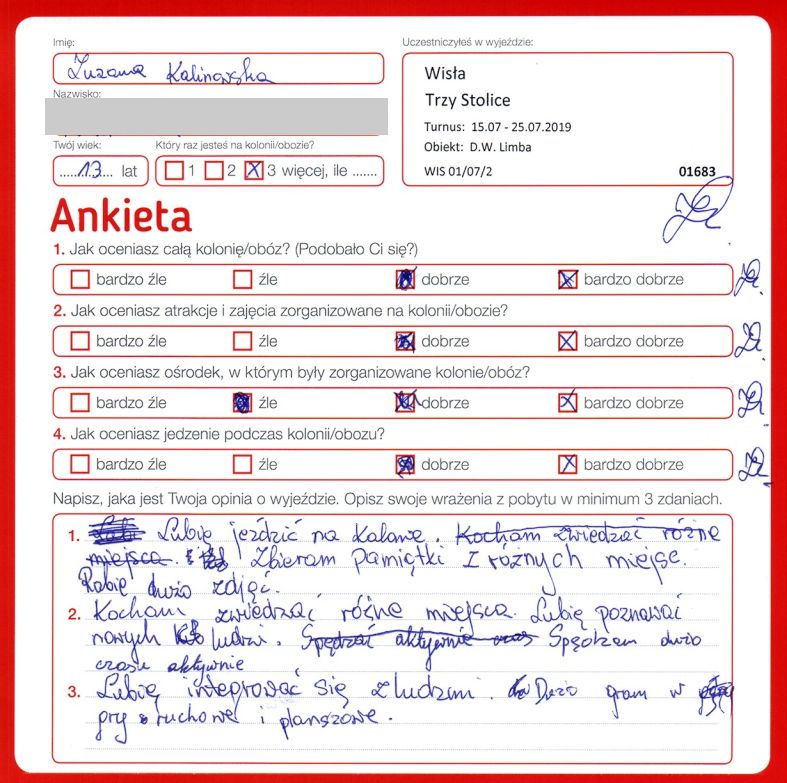 Imię:
Zuzanna Kalinowska
Nazwisko:
Twój wiek:
13 lat
Który raz jesteś na kolonii/obozie?
1 2 3 więcej, ile .......
Uczestniczyłeś w wyjeździe:
Wisła
Trzy Stolice
Turnus: 15.07 - 25.07.2019
Obiekt: D.W. Limba
WIS 01/07/2 01683
Ankieta
1. Jak oceniasz całą kolonię/obóz? (Podobało Ci się?)
bardzo źle źle dobrze bardzo dobrze
2. Jak oceniasz atrakcje i zajęcia zorganizowane na kolonii/obozie?
bardzo źle źle dobrze bardzo dobrze
3. Jak oceniasz ośrodek, w którym były zorganizowane kolonie/obóz?
bardzo źle źle dobrze bardzo dobrze
4. Jak oceniasz jedzenie podczas kolonii/obozu?
bardzo źle źle dobrze bardzo dobrze
Napisz, jaka jest Twoja opinia o wyjeździe. Opisz swoje wrażenia z pobytu w minimum 3 zdaniach.
1. Lubię jeździć na . Kocham zwiedzać różne
miejsca. Zbieram Pamiątki z różnych miejsc.
Robię dużo zdjęć.
2. Kocham zwiedzać różne miejsca. Lubię poznawać
nowych ludzi. Spędzać aktywnie czas Spędzam dużo
czasu aktywnie
3. Lubię integrować się z ludzmi. Dużo gram w
gry ruchowe i planszowe.